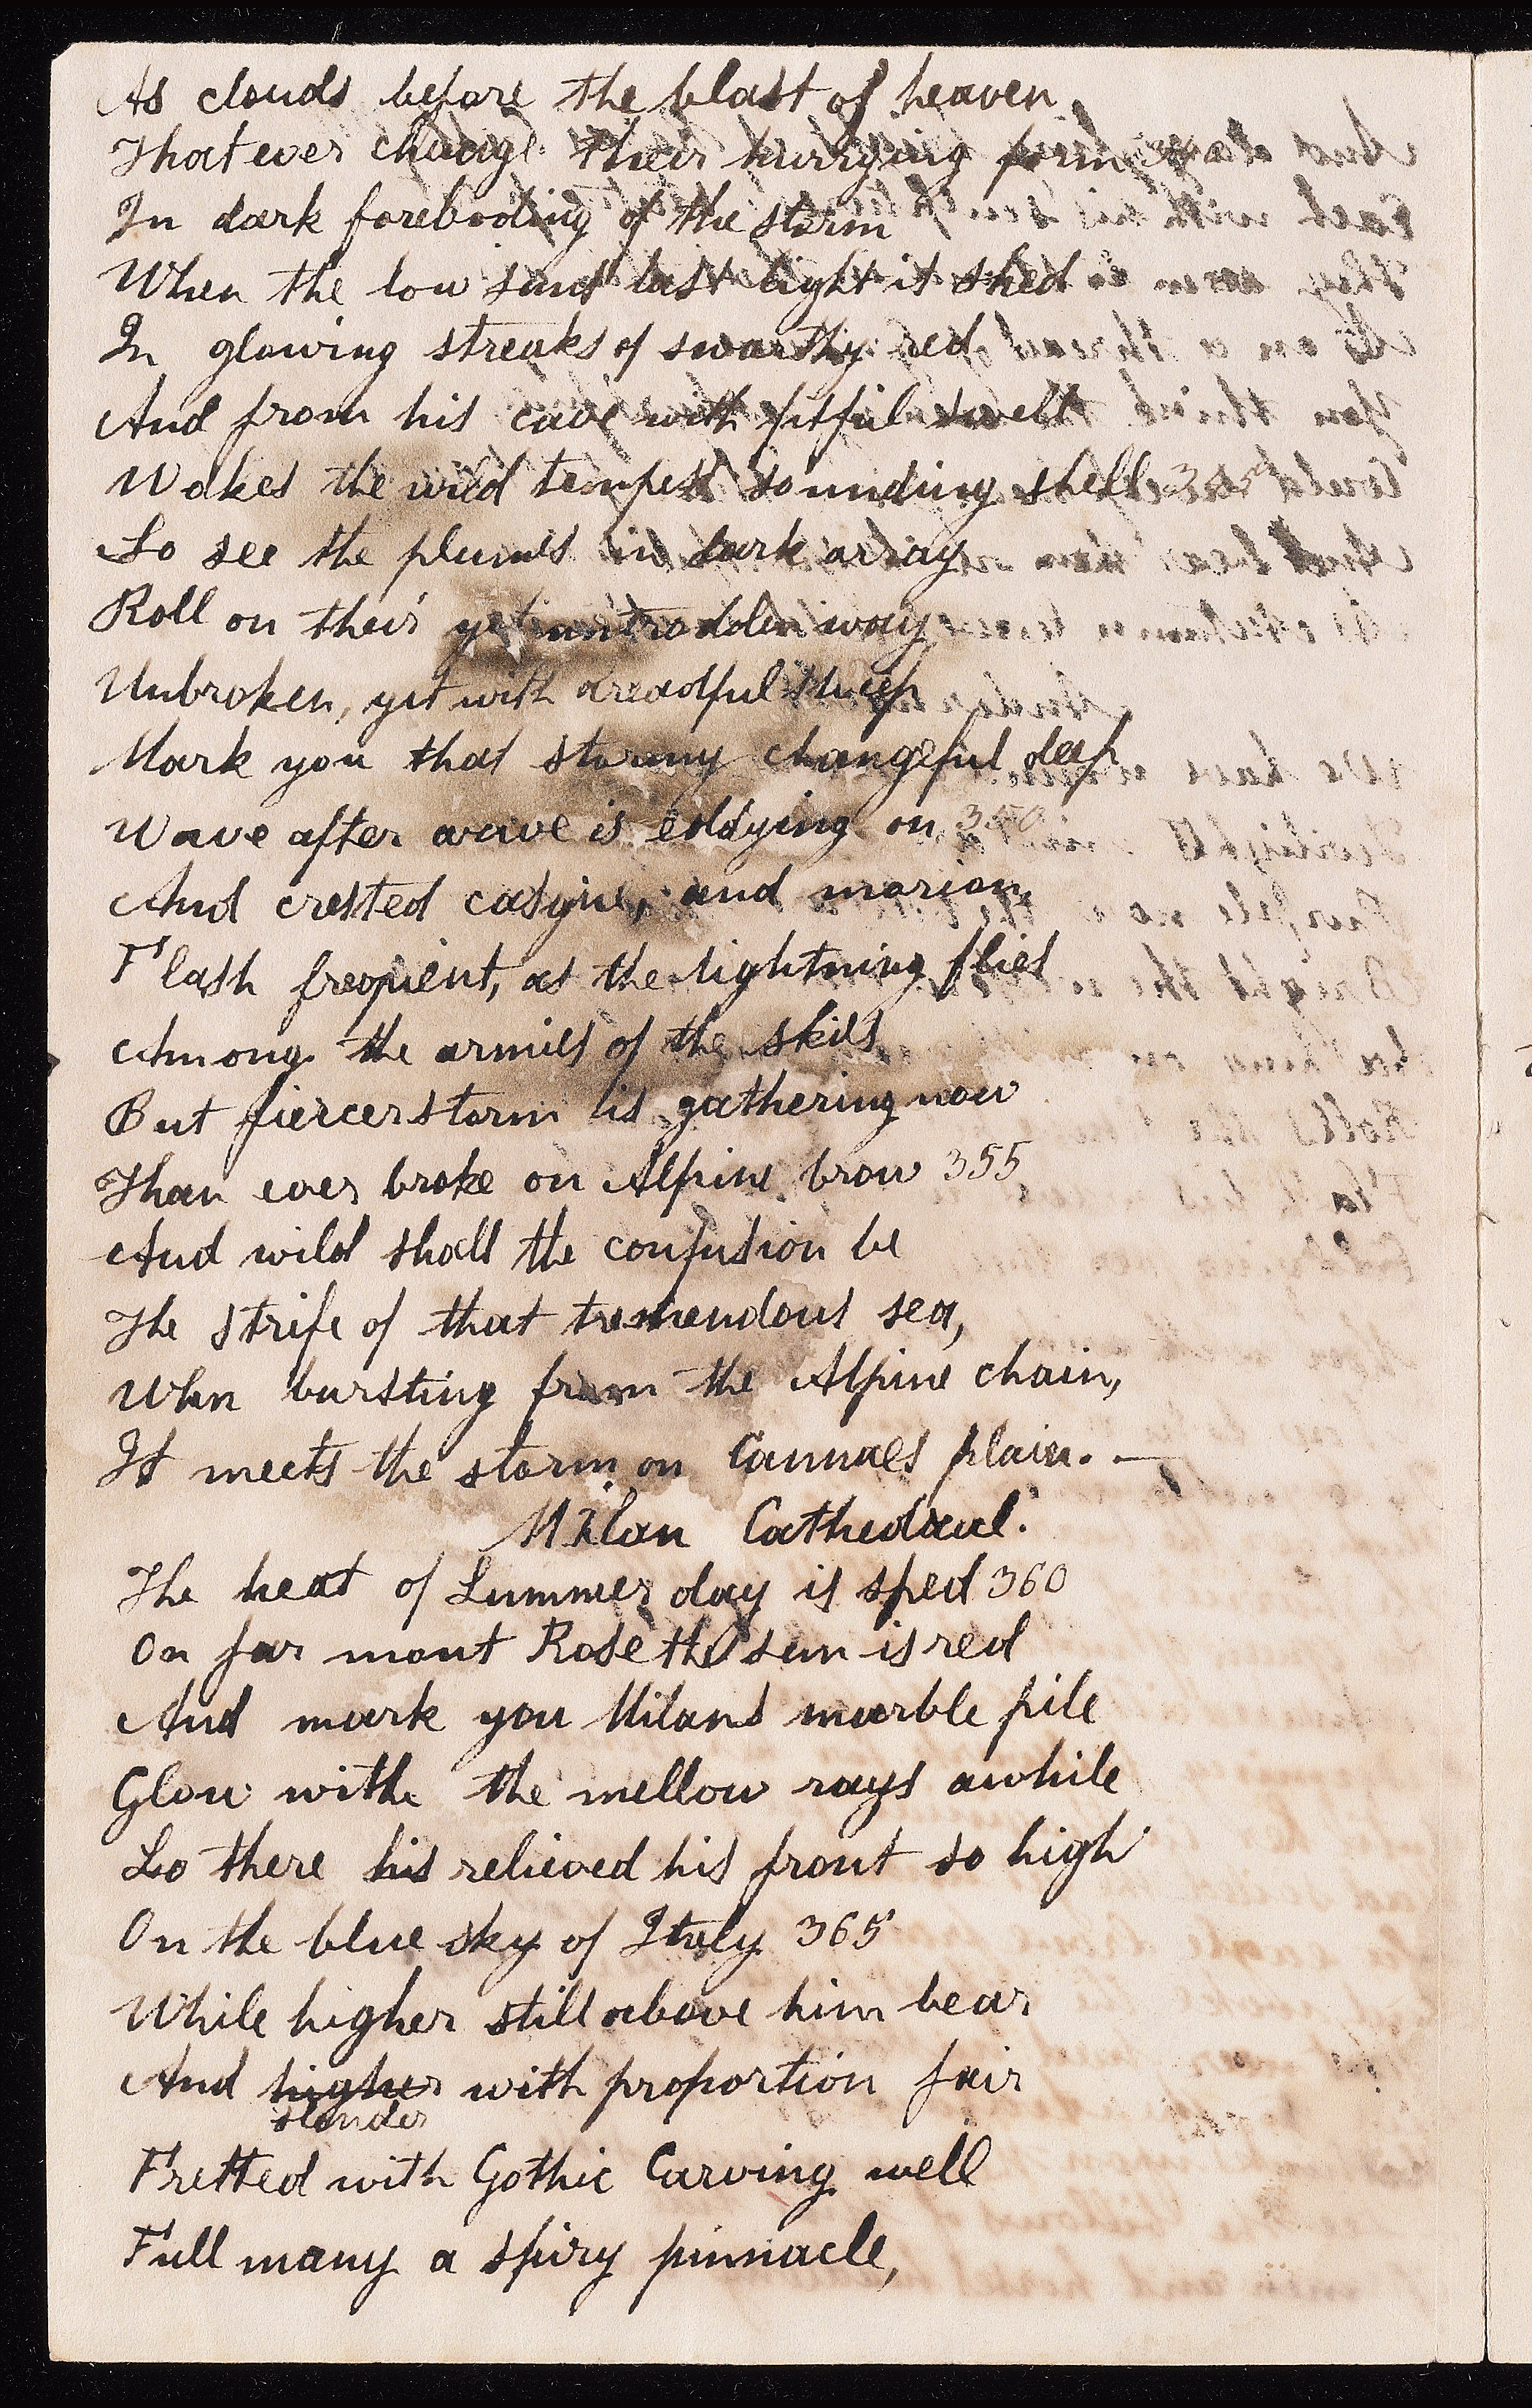 As clouds before the blast of heaven,
That ever change their hurrying form 340
In dark foreboding of the storm
When the low suns last light it shed
In glowing streaks of swarthy red
And from his cave with fitful swell
Wakes the wild tempest sounding shell 345
So see the plumes in dark array
Roll on their yet untrodden way
Unbroken, yet with dreadful sweep
Mark you that stormy changeful deep
Wave after wave is eddying on, 350
And crested casque, and morion,
Flash frequent, as the lightning flies
Among the armies of the skies
But fiercer storm is gathering now
Than ever broke on Alpine brow 355
And wild shall the confusion be
The strife of that tremendous sea,
When bursting from the Alpine chain,
It meets the storm on Cannaes plain. —
Milan Cathedral.
The heat of Summer day is sped 360
On far mont Rose the sun is red
And mark you Milans marble pile
Glow withe the mellow rays awhile
Lo there his relieved his front so high
On the blue sky of Italy 365
While higher still above him bear
And higher with proportion fair
slender
Fretted with Gothic Carving well
Full many a spiry pinnacle,